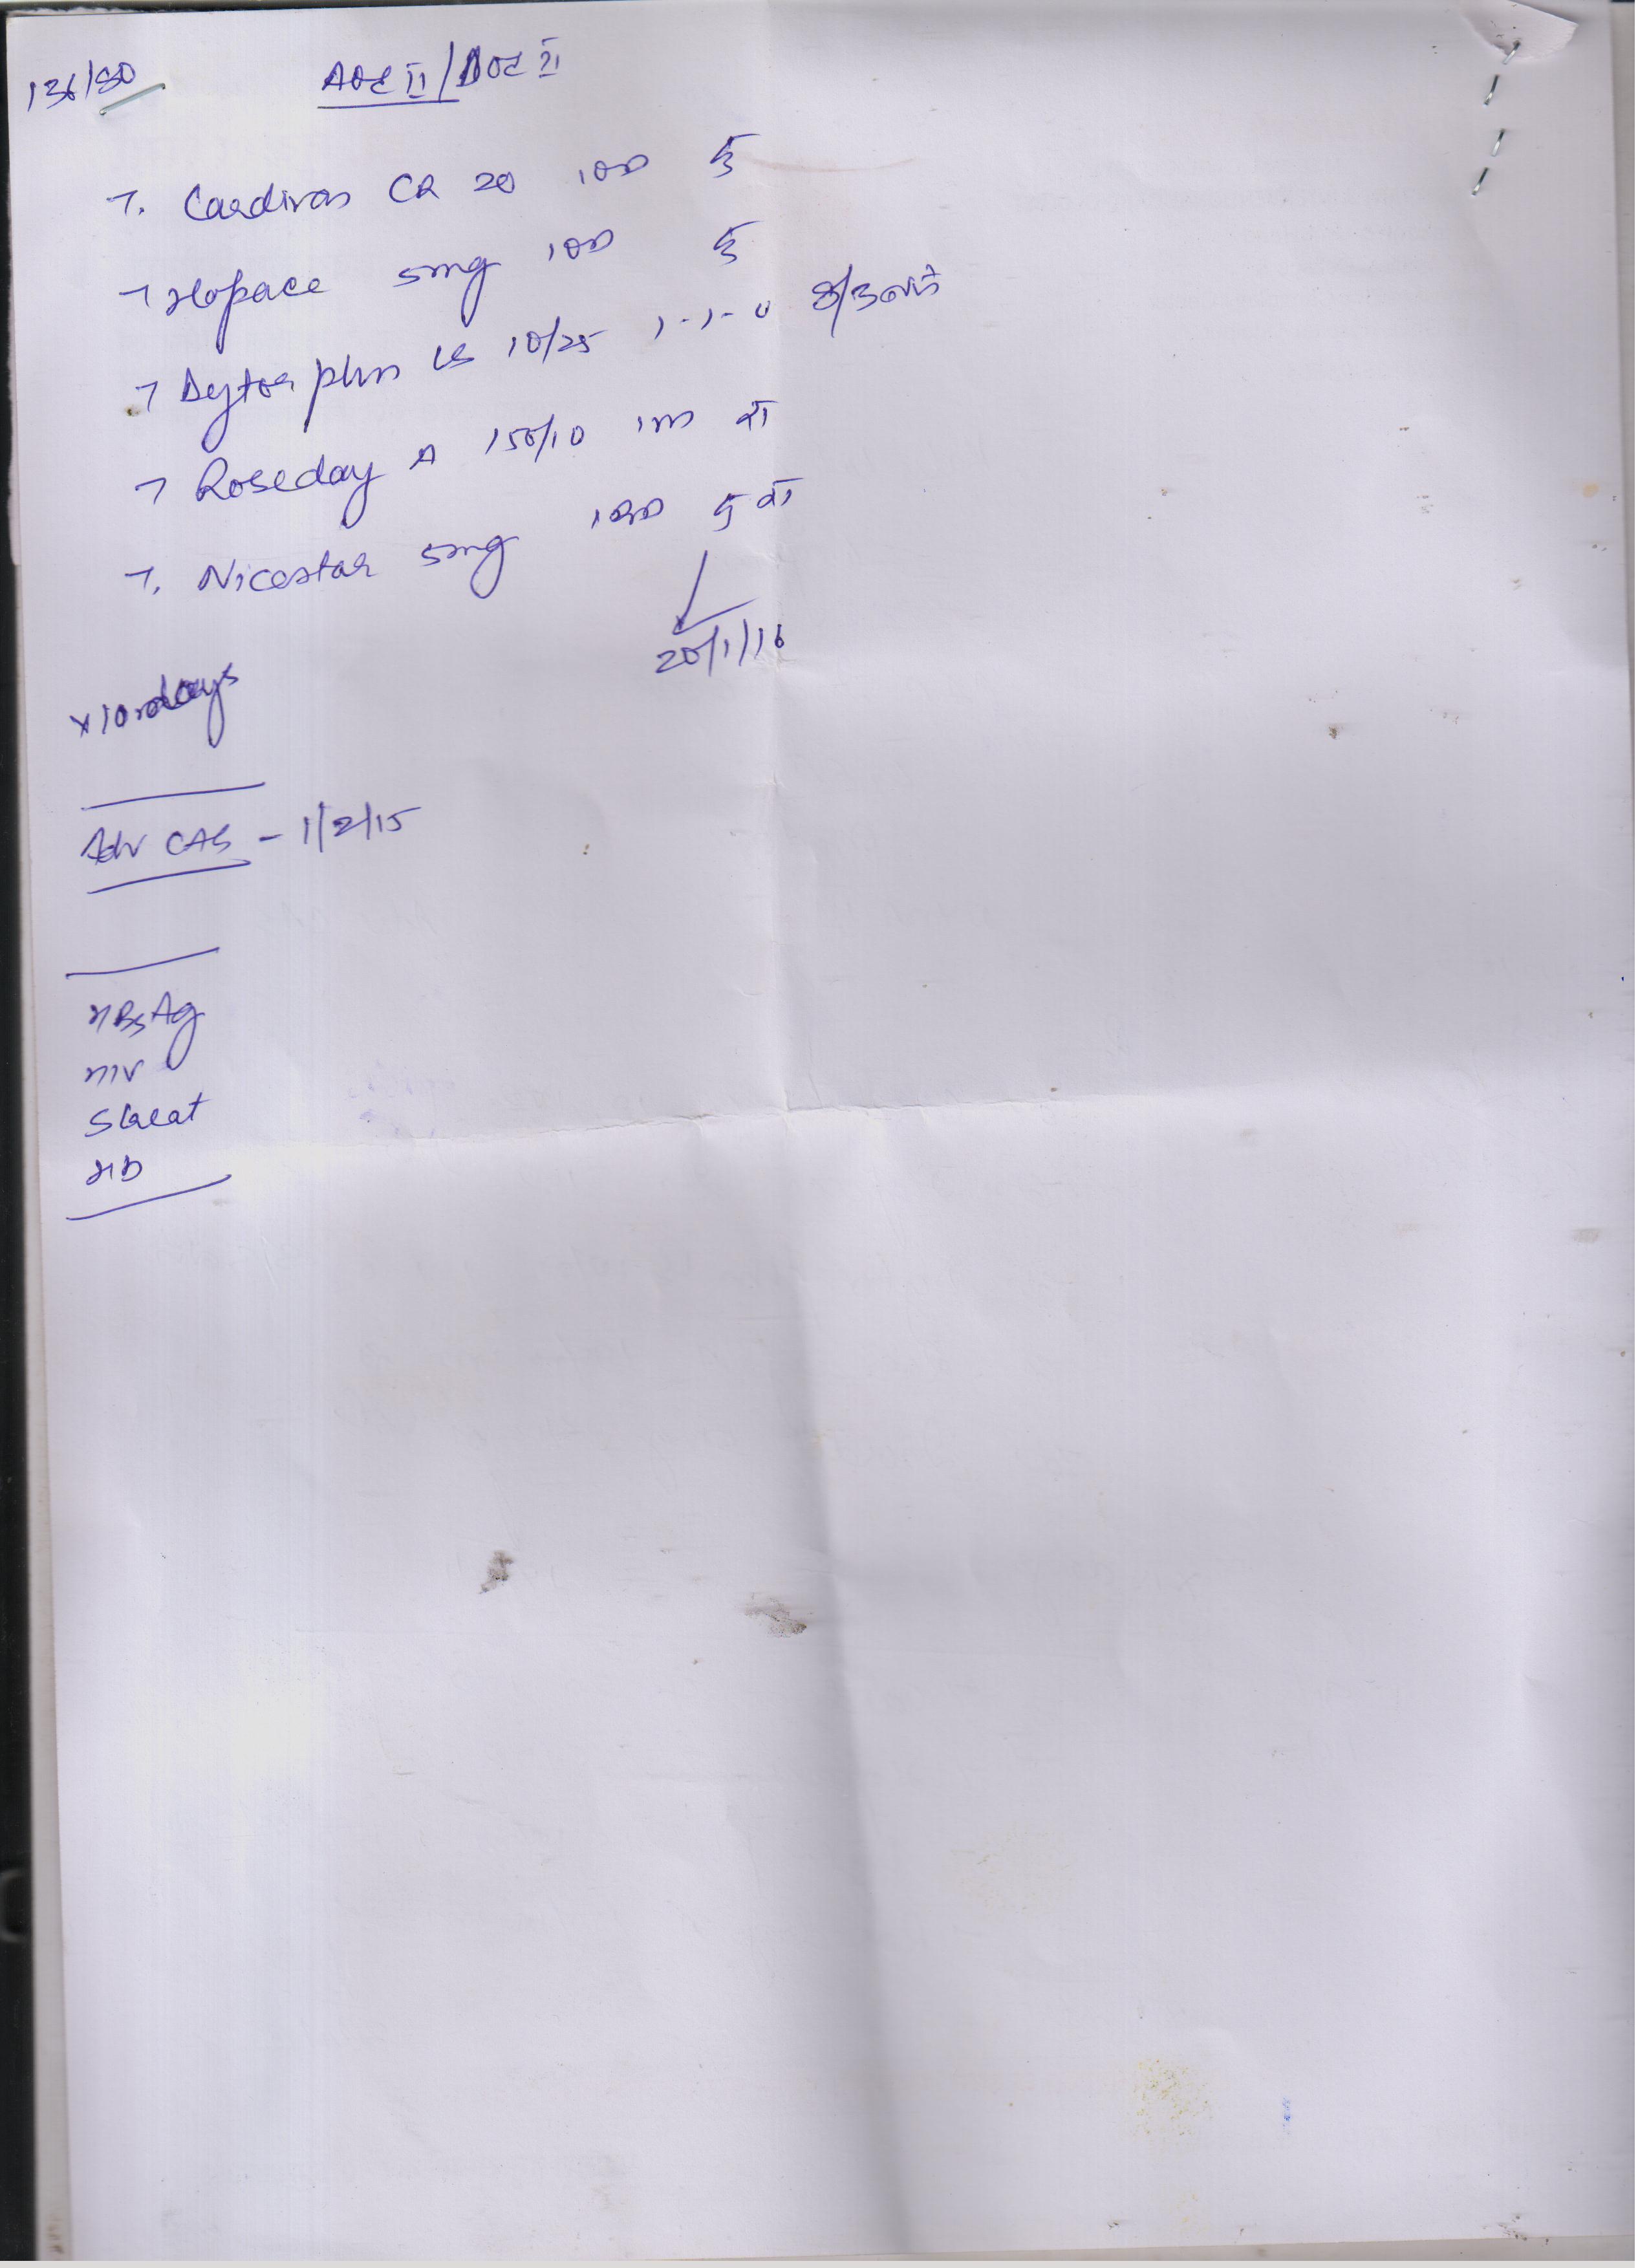 136/80 AOE II/DOE II
T. Cardivas CR 20 1OD
T Hopace 5mg 1OD
T Dytor plus LS 10/25 1-1-0 8/3
T Roseday A 150/10
T. Nicostar 5mg
20/1/16
x10 days
Adv CAG - 1/2/15
HBsAg
HIV
Sreat
HB